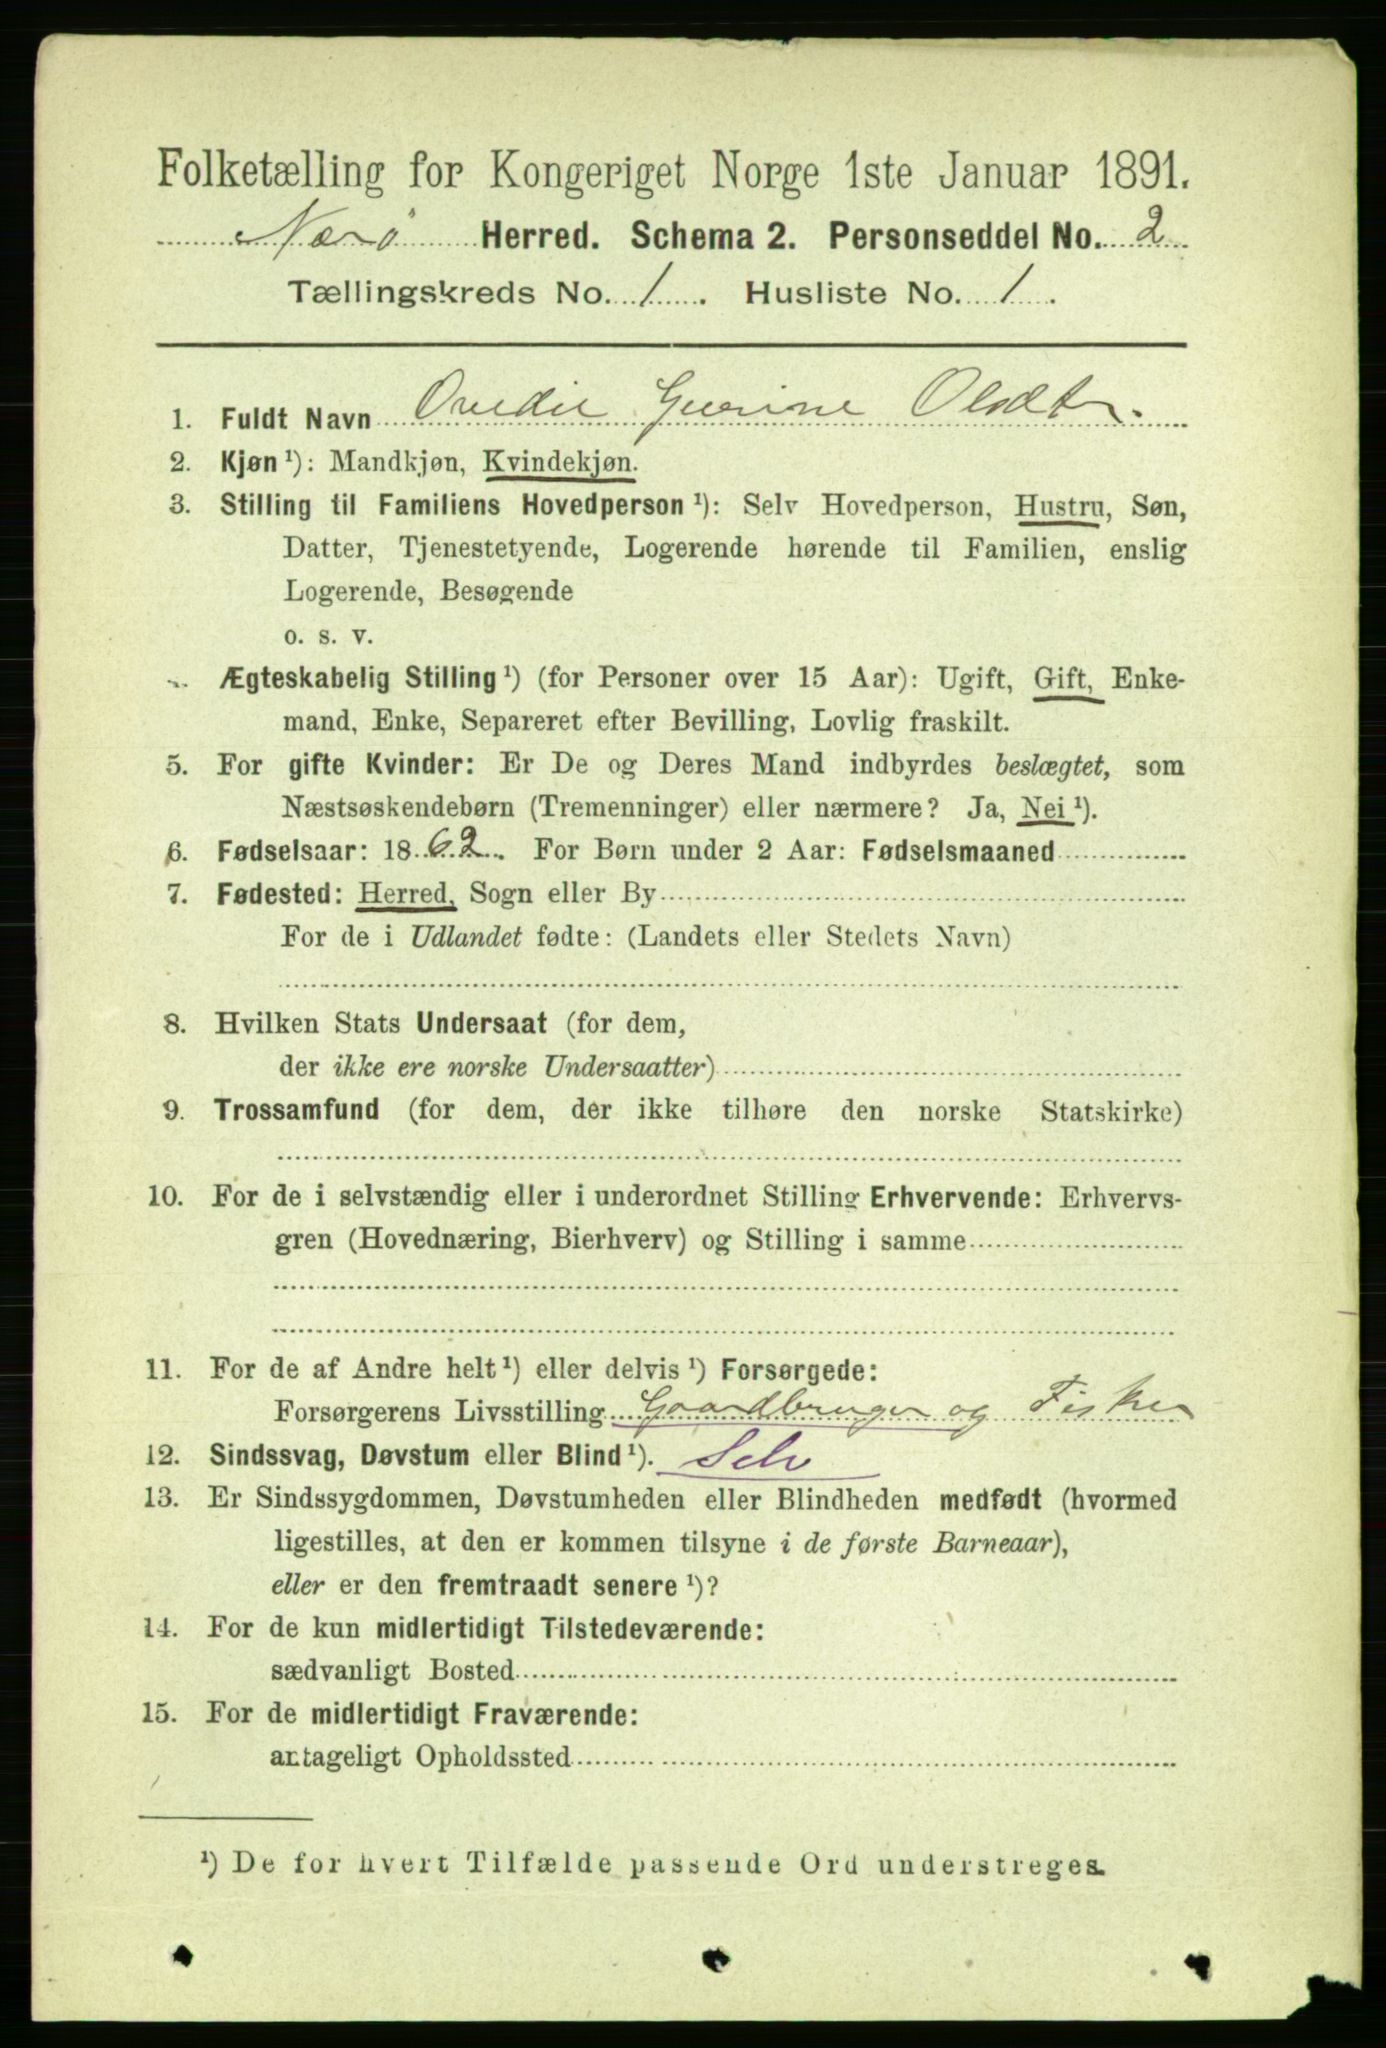 Folketælling for Kongeriget Norge 1ste Januar 1891.
Nærö Herred. Schema 2. Personseddel No. 2
Tællingskreds No. 1. Husliste No. 1.
1. Fuldt Navn Gurine Olsdtr.
2. Kjøn ¹): Mandkjøn, Kvindekjøn.
3. Stilling til Familiens Hovedperson ¹): Selv Hovedperson, Hustru, Søn,
Datter, Tjenestetyende, Logerende hørende til Familien, enslig
Logerende, Besøgende
o. s. v.
Ægteskabelig Stilling ¹) (for Personer over 15 Aar): Ugift, Gift, Enke-
mand, Enke, Separeret efter Bevilling, Lovlig fraskilt.
5. For gifte Kvinder: Er De og Deres Mand indbyrdes beslægtet, som
Næstsøskendebørn (Tremenninger) eller nærmere? Ja, Nei ¹).
6. Fødselsaar: 1862. For Børn under 2 Aar: Fødselsmaaned
7. Fødested: Herred, Sogn eller By
For de i Udlandet fødte: (Landets eller Stedets Navn)
8. Hvilken Stats Undersaat (for dem,
der ikke ere norske Undersaatter)
9. Trossamfund (for dem, der ikke tilhøre den norske Statskirke)
10. For de i selvstændig eller i underordnet Stilling Erhvervende: Erhvervs-
gren (Hovednæring, Bierhverv) og Stilling i samme
11. For de af Andre helt ¹) eller delvis ¹) Forsørgede:
Forsørgerens Livsstilling Gaardbruger og Fisker
12. Sindssvag, Døvstum eller Blind ¹). Selv
13. Er Sindssygdommen, Døvstumheden eller Blindheden medfødt (hvormed
ligestilles, at den er kommen tilsyne i de første Barneaar),
eller er den fremtraadt senere ¹)?
14. For de kun midlertidigt Tilstedeværende:
sædvanligt Bosted
15. For de midlertidigt Fraværende:
antageligt Opholdssted
¹) De for hvert Tilfælde passende Ord understreges.